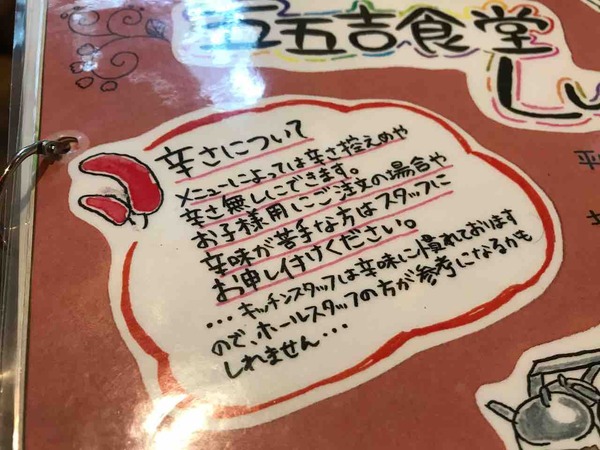 五五吉食堂
Lu
辛さについて
メニューによっては辛さ控えめや
辛さ無しにできます。
お子様用にご注文の場合や
辛味が苦手な方はスタッフに
お申し付けください。
...キッチンスタッフは辛味に慣れております
ので、ホールスタッフの方が参考になるかも
しれません...
平